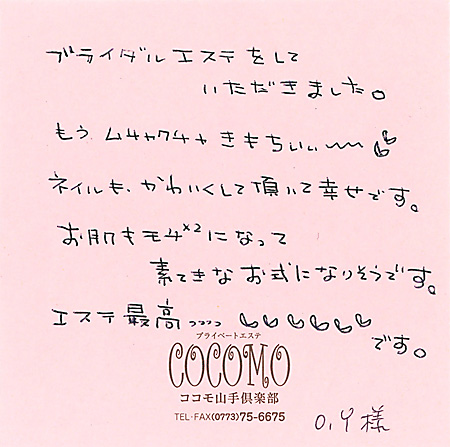 ブライダルエステをして
いただきました。
もう ムチャクチャ きもちぃぃ〜〜
ネイルも、かわいくして頂いて幸せです。
お肌もモチ×2になって
素てきなお式になりそうです。
エステ最高っっっっ
です。
プライベートエステ
COCOMO
ココモ山手倶楽部
TEL・FAX(0773)75-6675
O.Y様